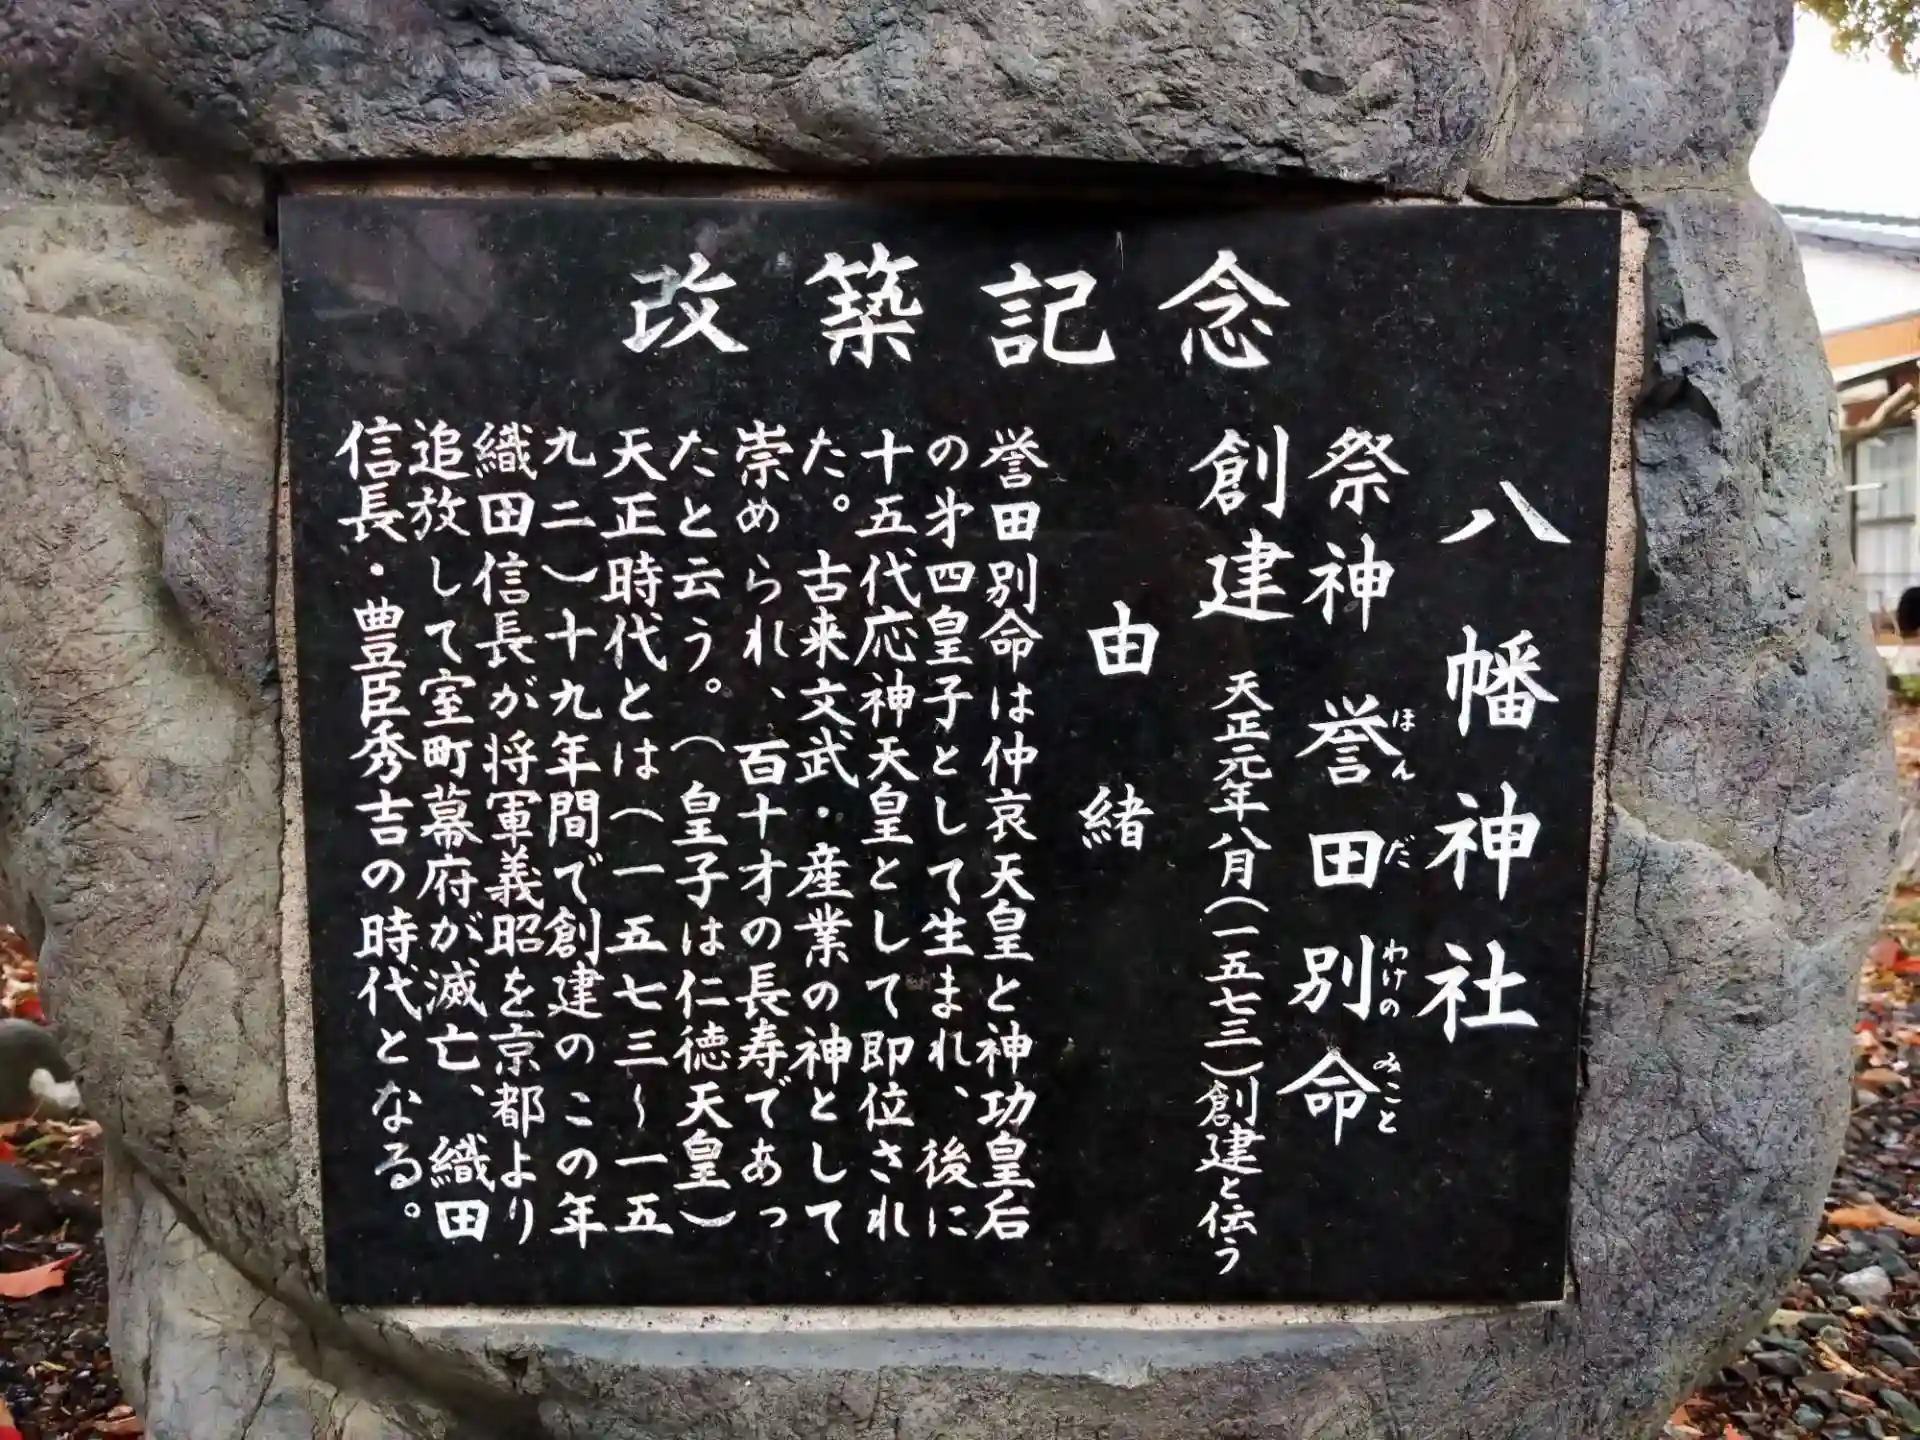 改築記念
八幡神社
祭神 誉田別命
ほんだわけのみこと
創建 天正元年八月(一五七三)創建と伝う
由緒
誉田別命は仲哀天皇と神功皇后
の才四皇子として生まれ、後に
十五代応神天皇として即位され
た。古来文武・産業の神として
崇められ、百十才の長寿であっ
たと云う。(皇子は仁徳天皇)
天正時代とは(一五七三～一五
九二)十九年間で創建のこの年
織田信長が将軍義昭を京都より
追放して室町幕府が滅亡、織田
信長・豊臣秀吉の時代となる。